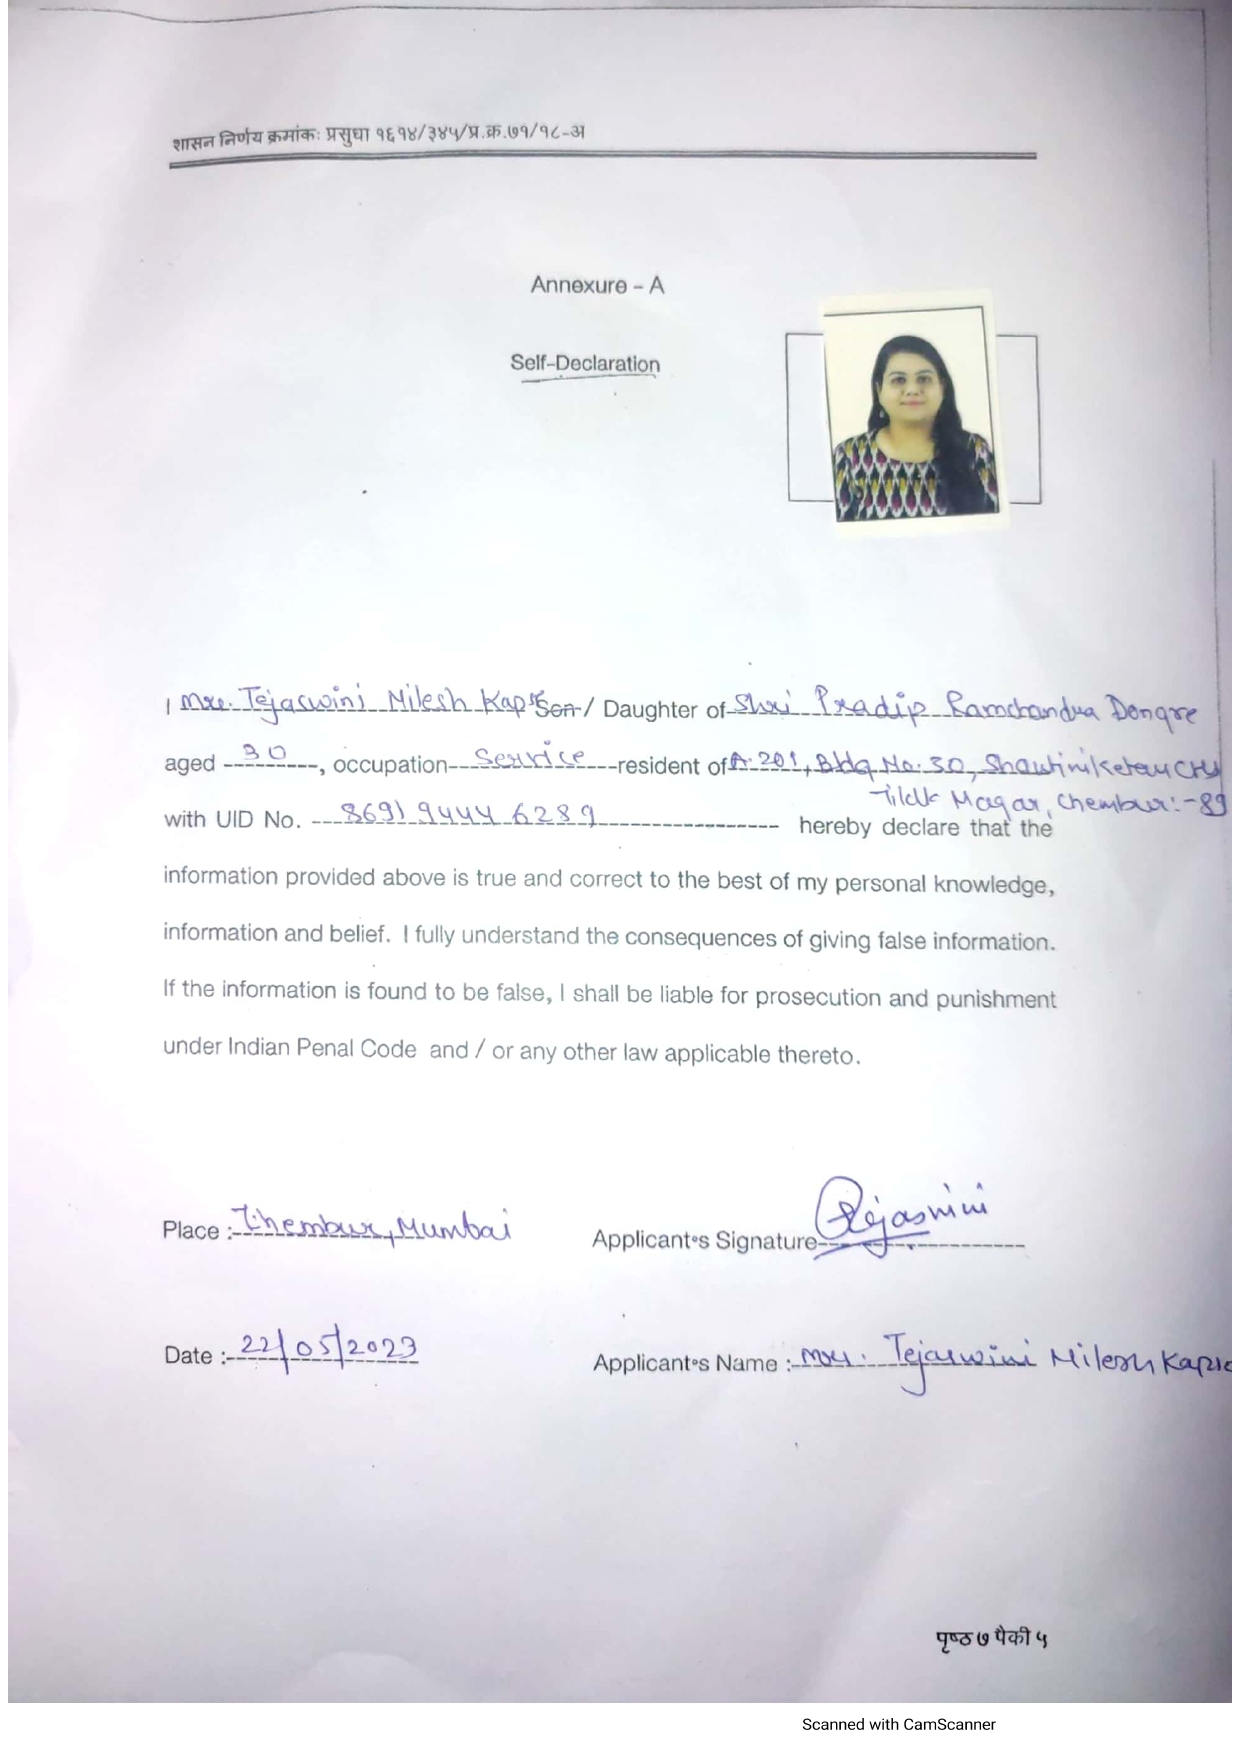 शासन निर्णय क्रमांकः प्रसुधा १६१४/३४५/प्र.क्र.७१/१८-अ
Annexure - A
Self-Declaration
I Mrs. Tejaswini Nilesh Son / Daughter of Shri Pradip Ramchandra Dongre
aged 30, occupation Service resident of A-201, Bldg No. 30, Shantiniketan CHS
Tilak Nagar, Chembur:-89
with UID No. 8691 9444 6289 hereby declare that the
information provided above is true and correct to the best of my personal knowledge,
information and belief. I fully understand the consequences of giving false information.
If the information is found to be false, I shall be liable for prosecution and punishment
under Indian Penal Code and / or any other law applicable thereto.
Place :- Chembur, Mumbai Applicant's Signature Tejaswini
Date :- 22/05/2023 Applicant's Name :- Mrs. Tejaswini Nilesh
पृष्ठ ७ पैकी ५
Scanned with CamScanner